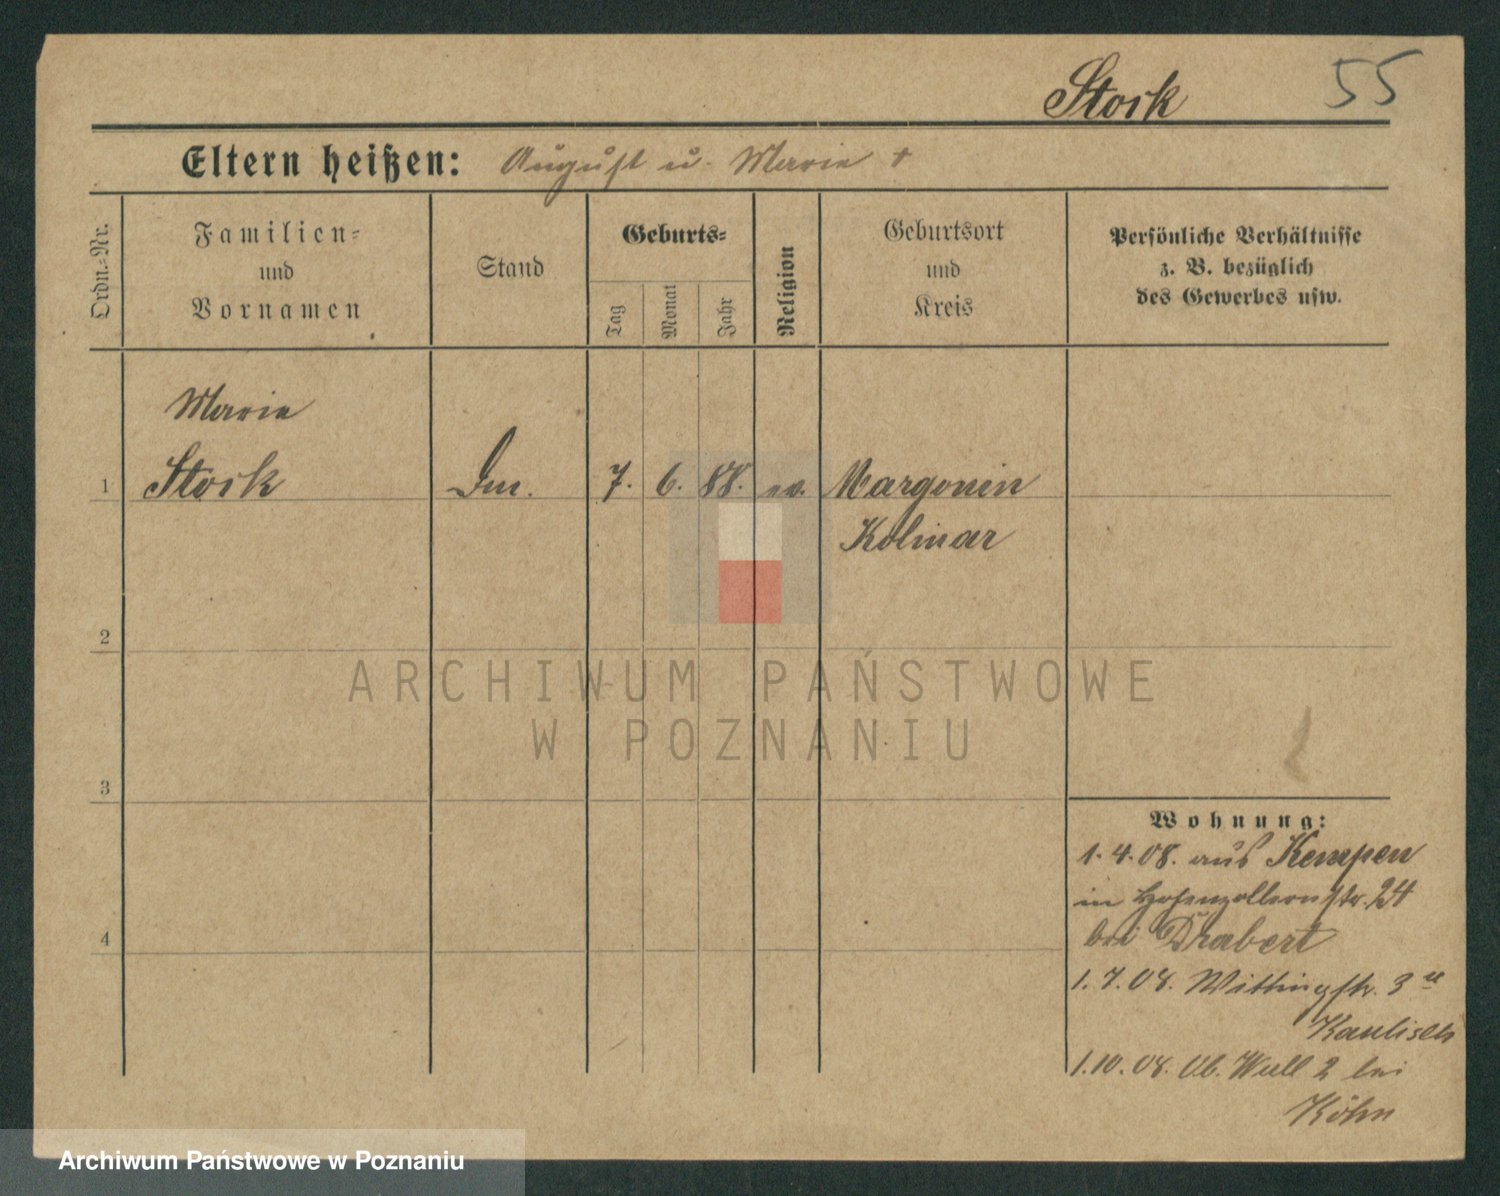 Stork 55
Eltern heißen: August u. Marie +
Ordn.-Nr.
Familien-
und
Vornamen
Stand
Geburts-
Tag
Monat
Jahr
Religion
Geburtsort
und
Kreis
Persönliche Verhältnisse
z. B. bezüglich
des Gewerbes usw.
Marie
1 Stork 7. 6. 88. ev. Margonin
Kolmar
2
3
4
Wohnung:
1.4.08. aus Kempen
in Hohenzollernstr. 24
bei Drabert
1.7.08. Wittingstr. 3
Kaulisch
1.10.08. Ob. Wall 2 bei
Köhn
ARCHIWUM PAŃSTWOWE
W POZNANIU
Archiwum Państwowe w Poznaniu